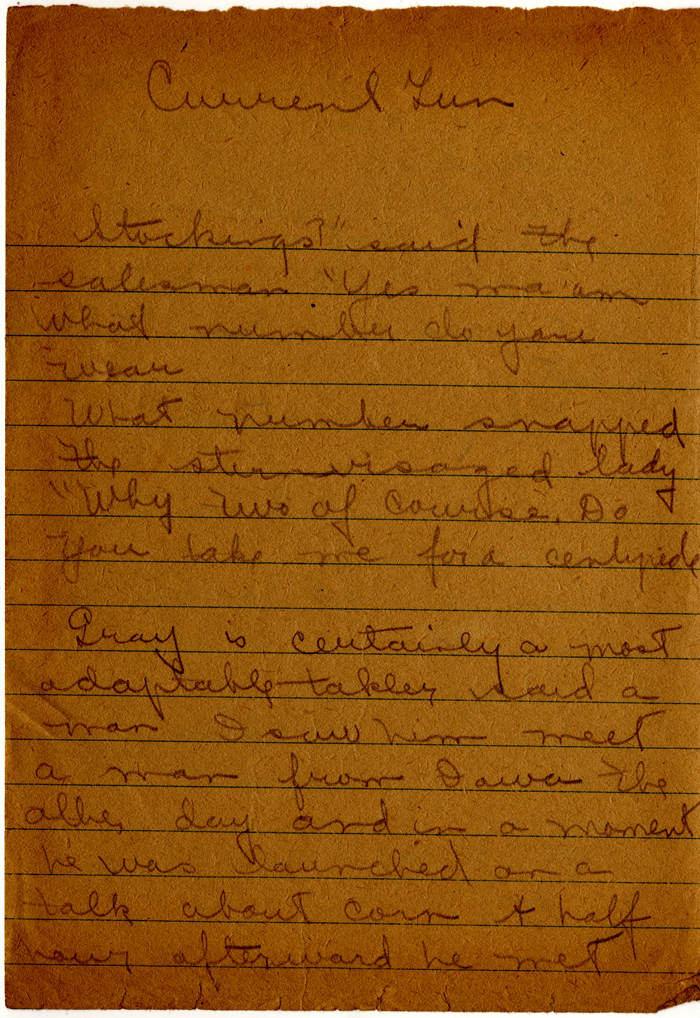 Current Fun
Stockings?" said the
salesman "Yes ma'am
What number do you
wear
What number snapped
the stern visaged lady
"Why two of course. Do
you take me for a centipede
Gray is certainly a most
adaptable talker said a
man I saw him meet
a man from Iowa the
other day and in a moment
he was launched on a
talk about corn A half
hour afterward he met